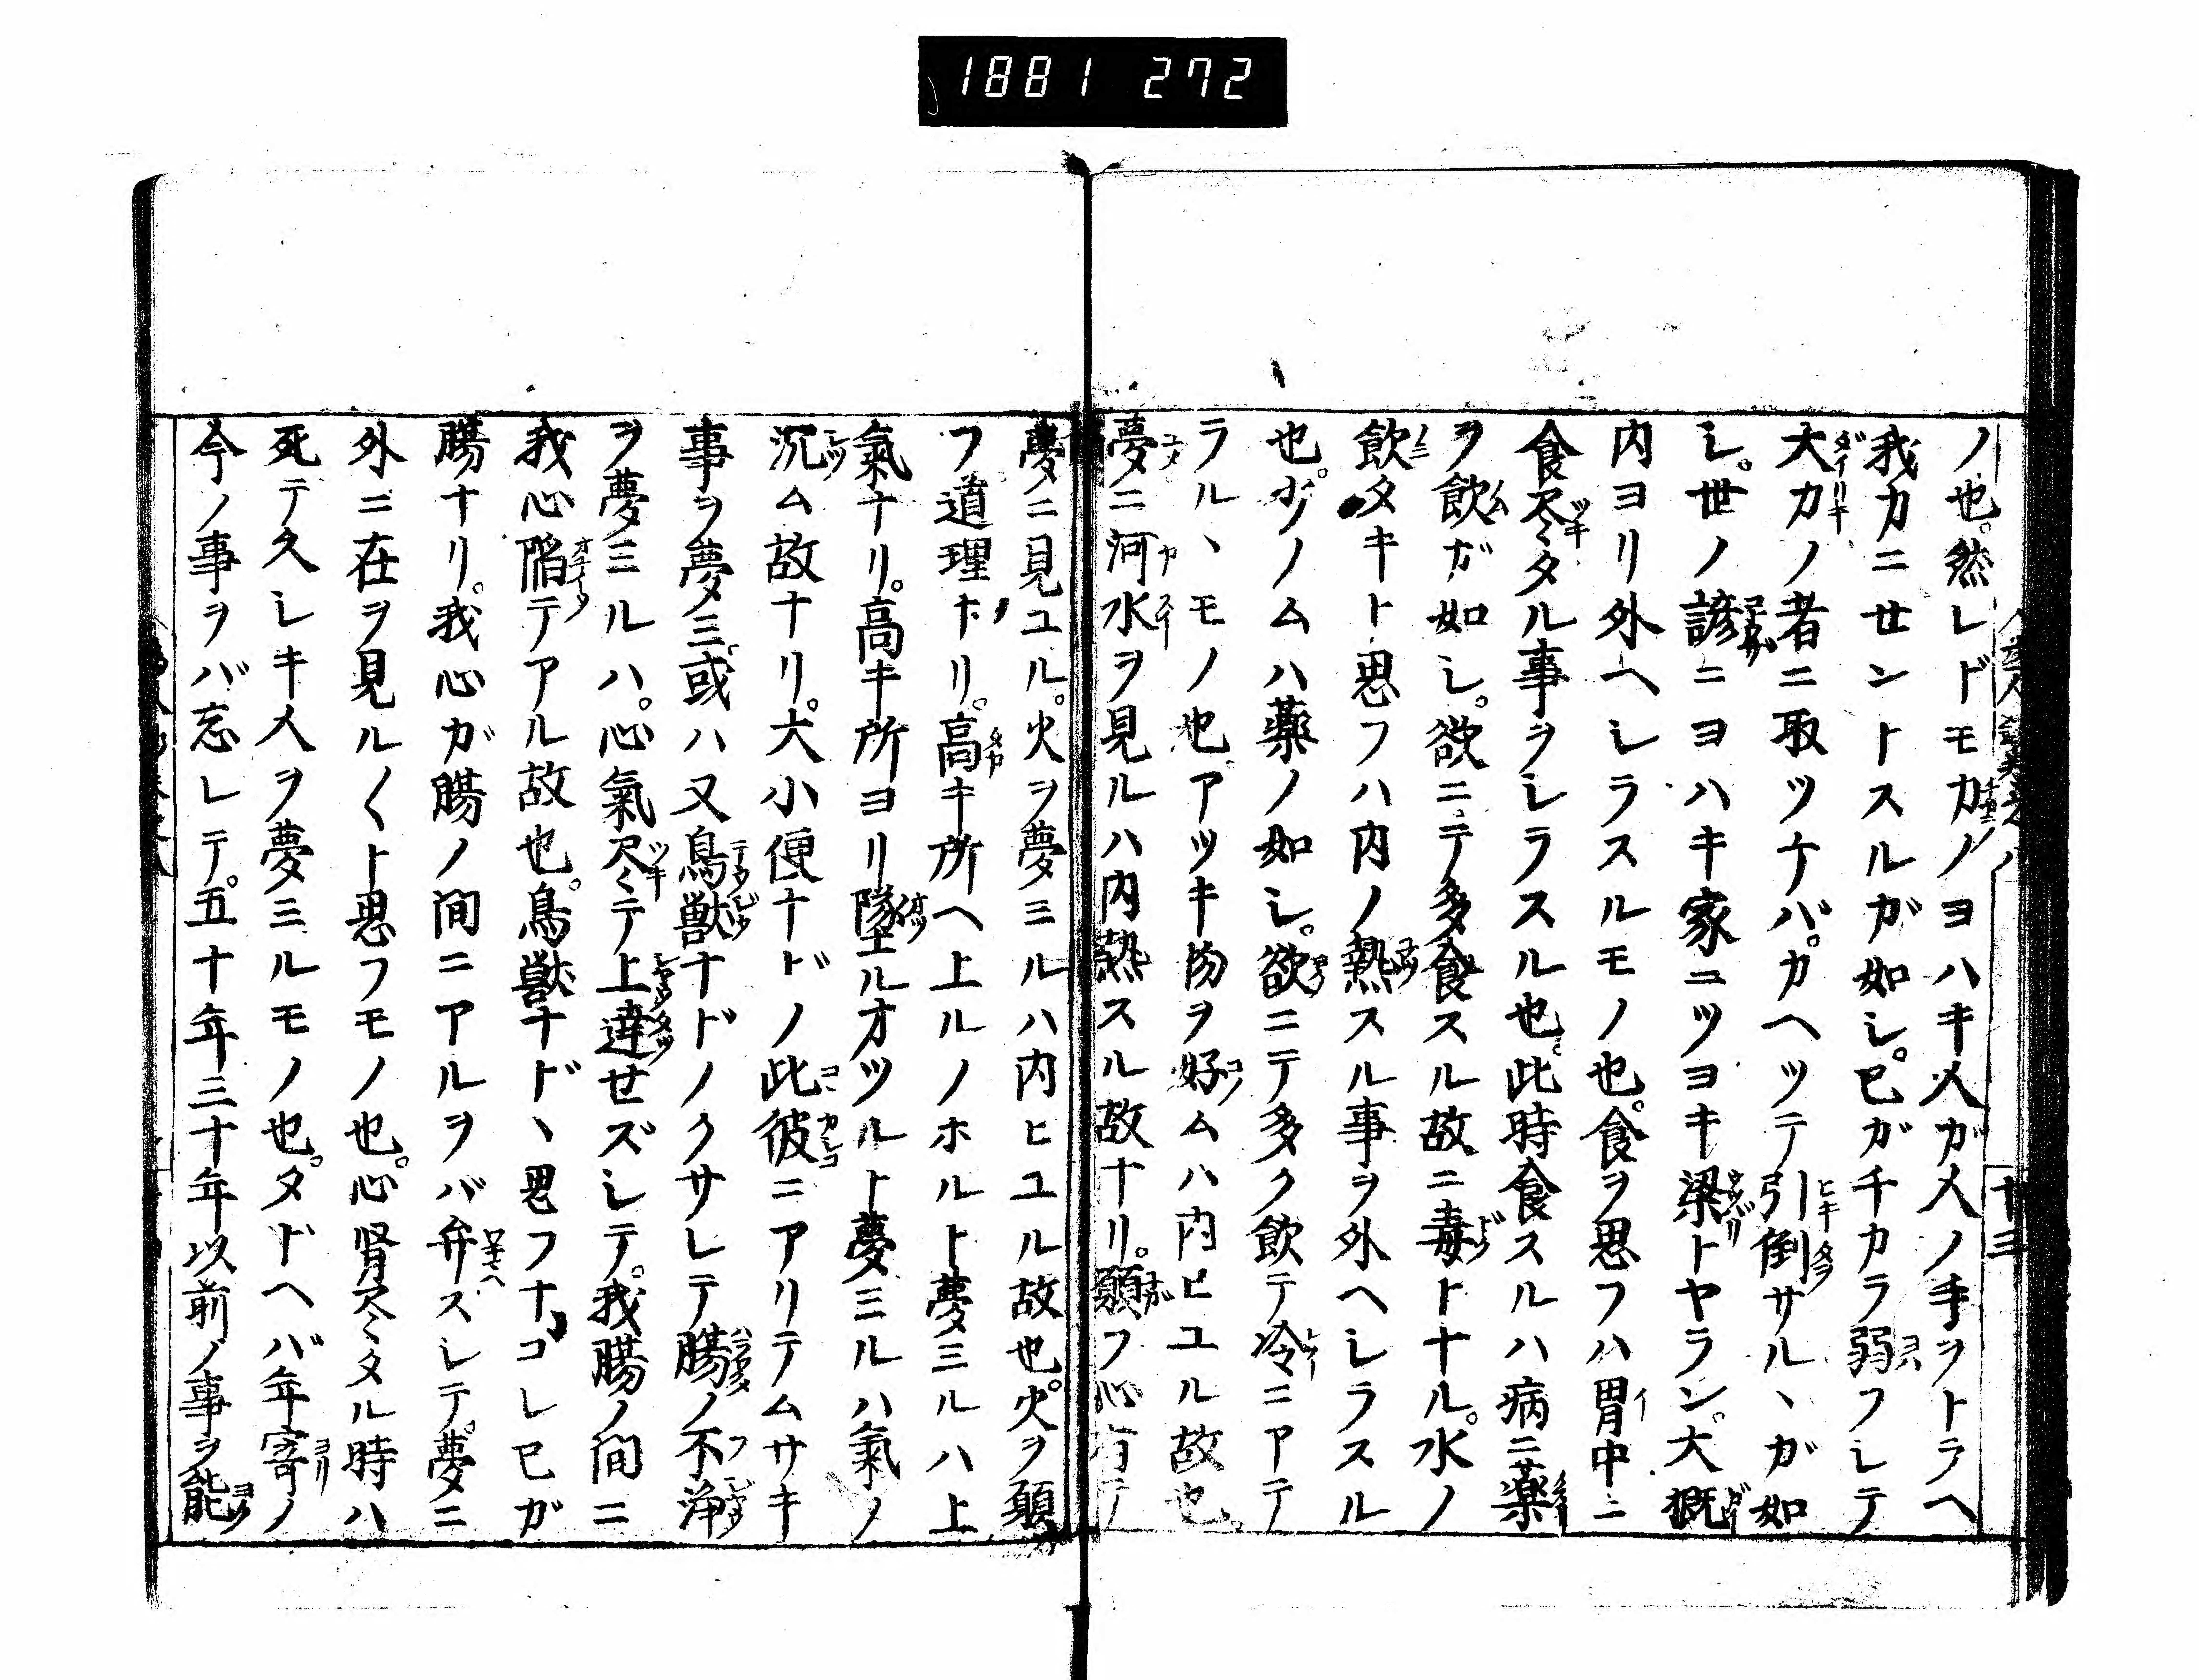 1881 272
ノ也。然レドモ力ノヨハキ人ガ人ノ手ヲトラヘ
我力ニせントスルガ如し。已ガチカラ弱フレテ
大力ノ者ニ取ツナバ。カヘツテ引倒サルヽガ如
し。世ノ諺ニヨハキ家ニツヨキ梁トヤラン。大概
内ヨリ外ヘシラスルモノ也。食ヲ思フハ胃中ニ
食尽タル事ヲシラスル也。此時食スルハ病ニ薬
ヲ飲ガ如し。欲ニテ多食スル故ニ毒トナル。水ノ
飲タキト思フハ内ノ熱スル事ヲ外ヘシラスル
也。少ノムハ薬ノ如し。欲ニテ多ク飲テ冷ニアテ
ラルヽモノ也。アツキ物ヲ好ムハ内ヒユル故也。
夢ニ河水ヲ見ルハ内熱スル故ナリ。願フ心有テ
夢ニ見ユル。火ヲ夢ミルハ内ヒユル故也。火ヲ願
フ道理ナリ。高キ所ヘ上ルノホルト夢ミルハ上
氣ナリ。高キ所ヨリ墜ルオツルト夢ミルハ氣ノ
沉ム故ナリ。大小便ナドノ此彼ニアリテムサキ
事ヲ夢ミ。或ハ又鳥獣ナドノクサレテ腸ノ不浄
ヲ夢ミルハ。心氣尽テ上達せズシテ。我腸ノ間ニ
我心陥テアル故也。鳥獣ナドヽ思フナ。コレ已ガ
腸ナリ。我心ガ腸ノ間ニアルヲバ弁ズシテ。夢ニ
外ニ在ヲ見ル〱ト思フモノ也。心腎尽タル時ハ
死テ久シキ人ヲ夢ミルモノ也。タトヘバ年寄ノ
今ノ事ヲバ忘レテ。五十年三十年以前ノ事ヲ能